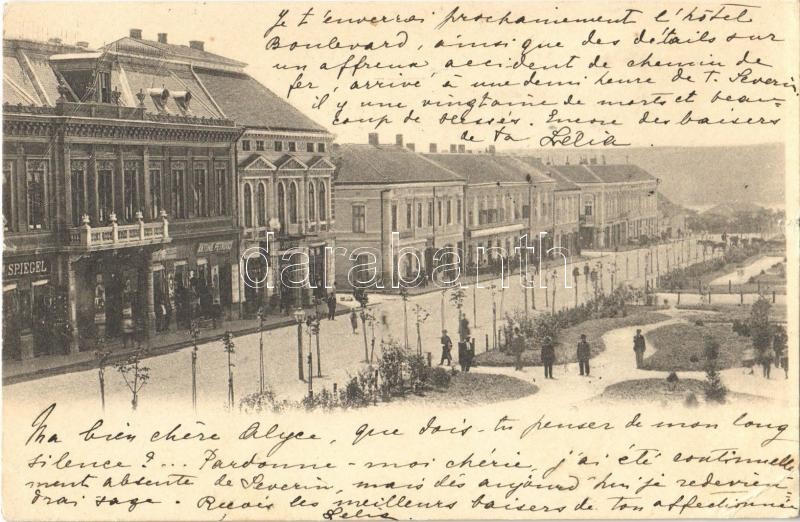 Je t'enverrai prochainement l'hôtel
Boulevard, ainsi que des détails sur
un affreux accident de chemin de
fer, arrivé à une demi heure de T. Severin
il y une vingtaine de morts et beau-
coup de blessés. Encore des baisers
de ta Lelia
SPIEGEL
darabanth
Ma bien chère Alyce, que dois-tu penser de mon long
silence?... Pardonne-moi chérie, j'ai été continuelle
ment absente de Severin, mais dès aujourd'hui je redevien
drai sage. Reçois les meilleurs baisers de ton affectionnée
Lelia